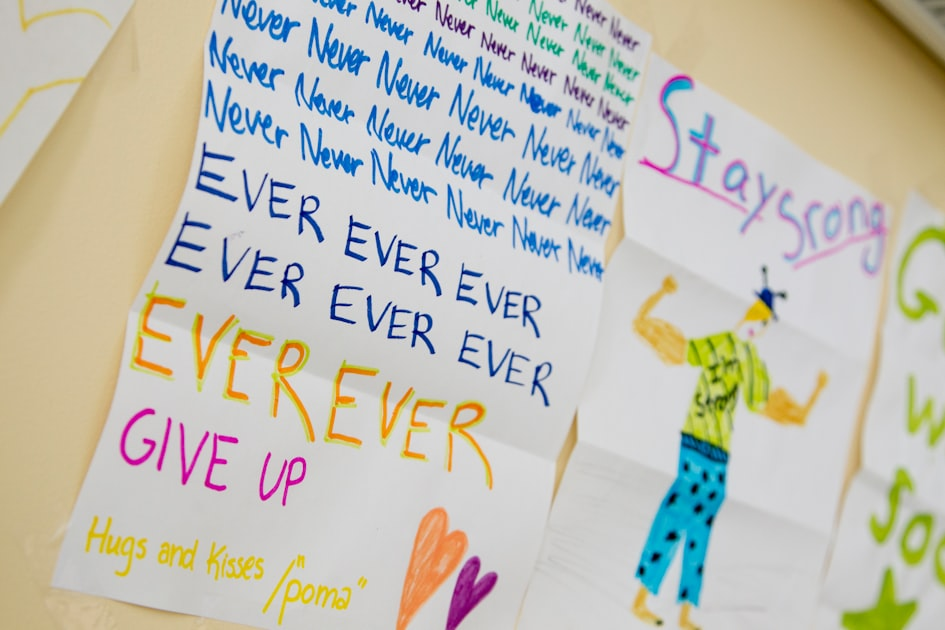 Never Never
Never Never Never
Never Never Never Never
Never Never Never Never Never Never
Never Never Never Never Never Never
Never Never Never Never Never Never
Never Never Never Never Never Never
Never Never Never Never Never Never
EVER EVER EVER
EVER EVER EVER
EVER EVER
GIVE UP
Hugs and Kisses /"poma"
Stay srong
I'm
strong
G
W